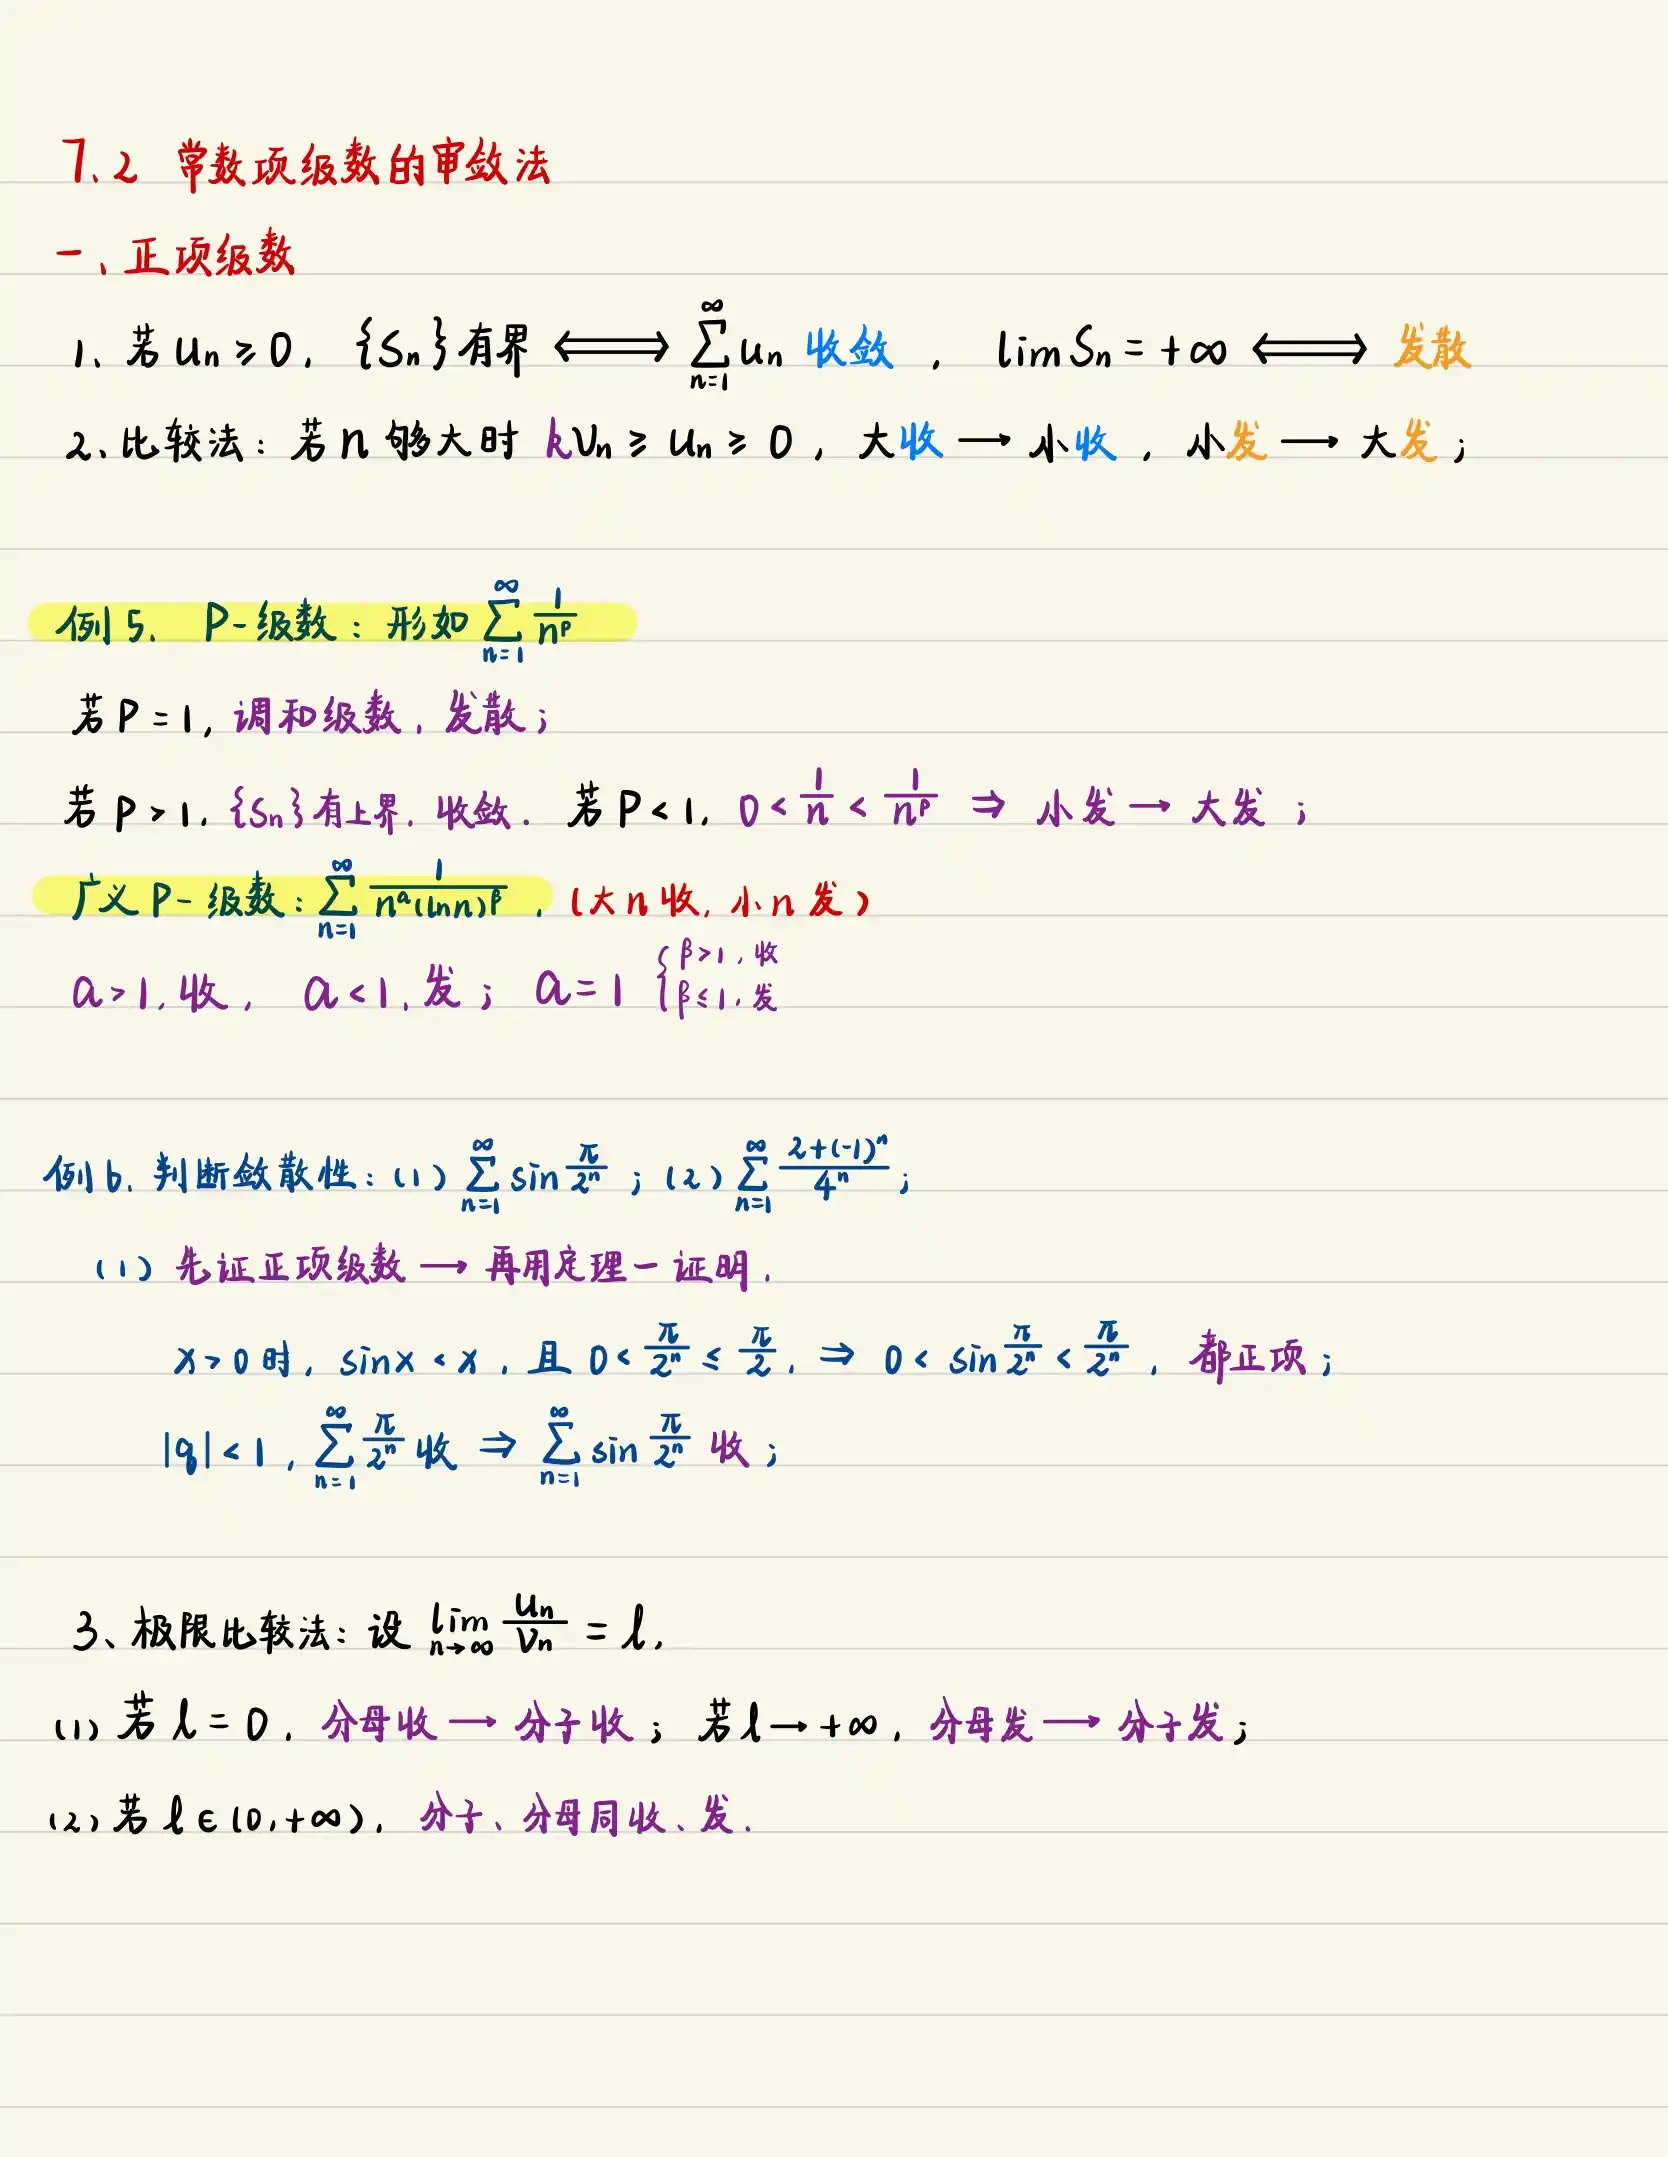 7.2 常数项级数的审敛法
一、正项级数
1、若 uₙ ≥ 0, {Sₙ}有界 ⟺ ∑_{n=1}^{∞} uₙ 收敛, lim Sₙ = +∞ ⟺ 发散
2、比较法: 若 n 够大时 kVₙ ≥ uₙ ≥ 0, 大收 → 小收, 小发 → 大发;
例5. P-级数: 形如 ∑_{n=1}^{∞} 1/n^p
若 P = 1, 调和级数, 发散;
若 P > 1, {Sₙ}有上界, 收敛. 若 P < 1, 0 < 1/n < 1/n^p ⇒ 小发 → 大发;
广义 P-级数: ∑_{n=1}^{∞} 1/(n^a(lnn)^β), (大n收, 小n发)
a > 1, 收, a < 1, 发; a = 1 { β > 1, 收
β ≤ 1, 发
例6. 判断敛散性: (1) ∑_{n=1}^{∞} sin π/2ⁿ; (2) ∑_{n=1}^{∞} (2+(-1)ⁿ)/4ⁿ;
(1) 先证正项级数 → 再用定理一证明.
x > 0 时, sinx < x, 且 0 < π/2ⁿ ≤ π/2, ⇒ 0 < sin π/2ⁿ < π/2ⁿ, 都正项;
|q| < 1, ∑_{n=1}^{∞} π/2ⁿ 收 ⇒ ∑_{n=1}^{∞} sin π/2ⁿ 收;
3、极限比较法: 设 lim_{n→∞} uₙ/Vₙ = l,
(1) 若 l = 0, 分母收 → 分子收; 若 l → +∞, 分母发 → 分子发;
(2) 若 l ∈ (0,+∞), 分子、分母同收、发.